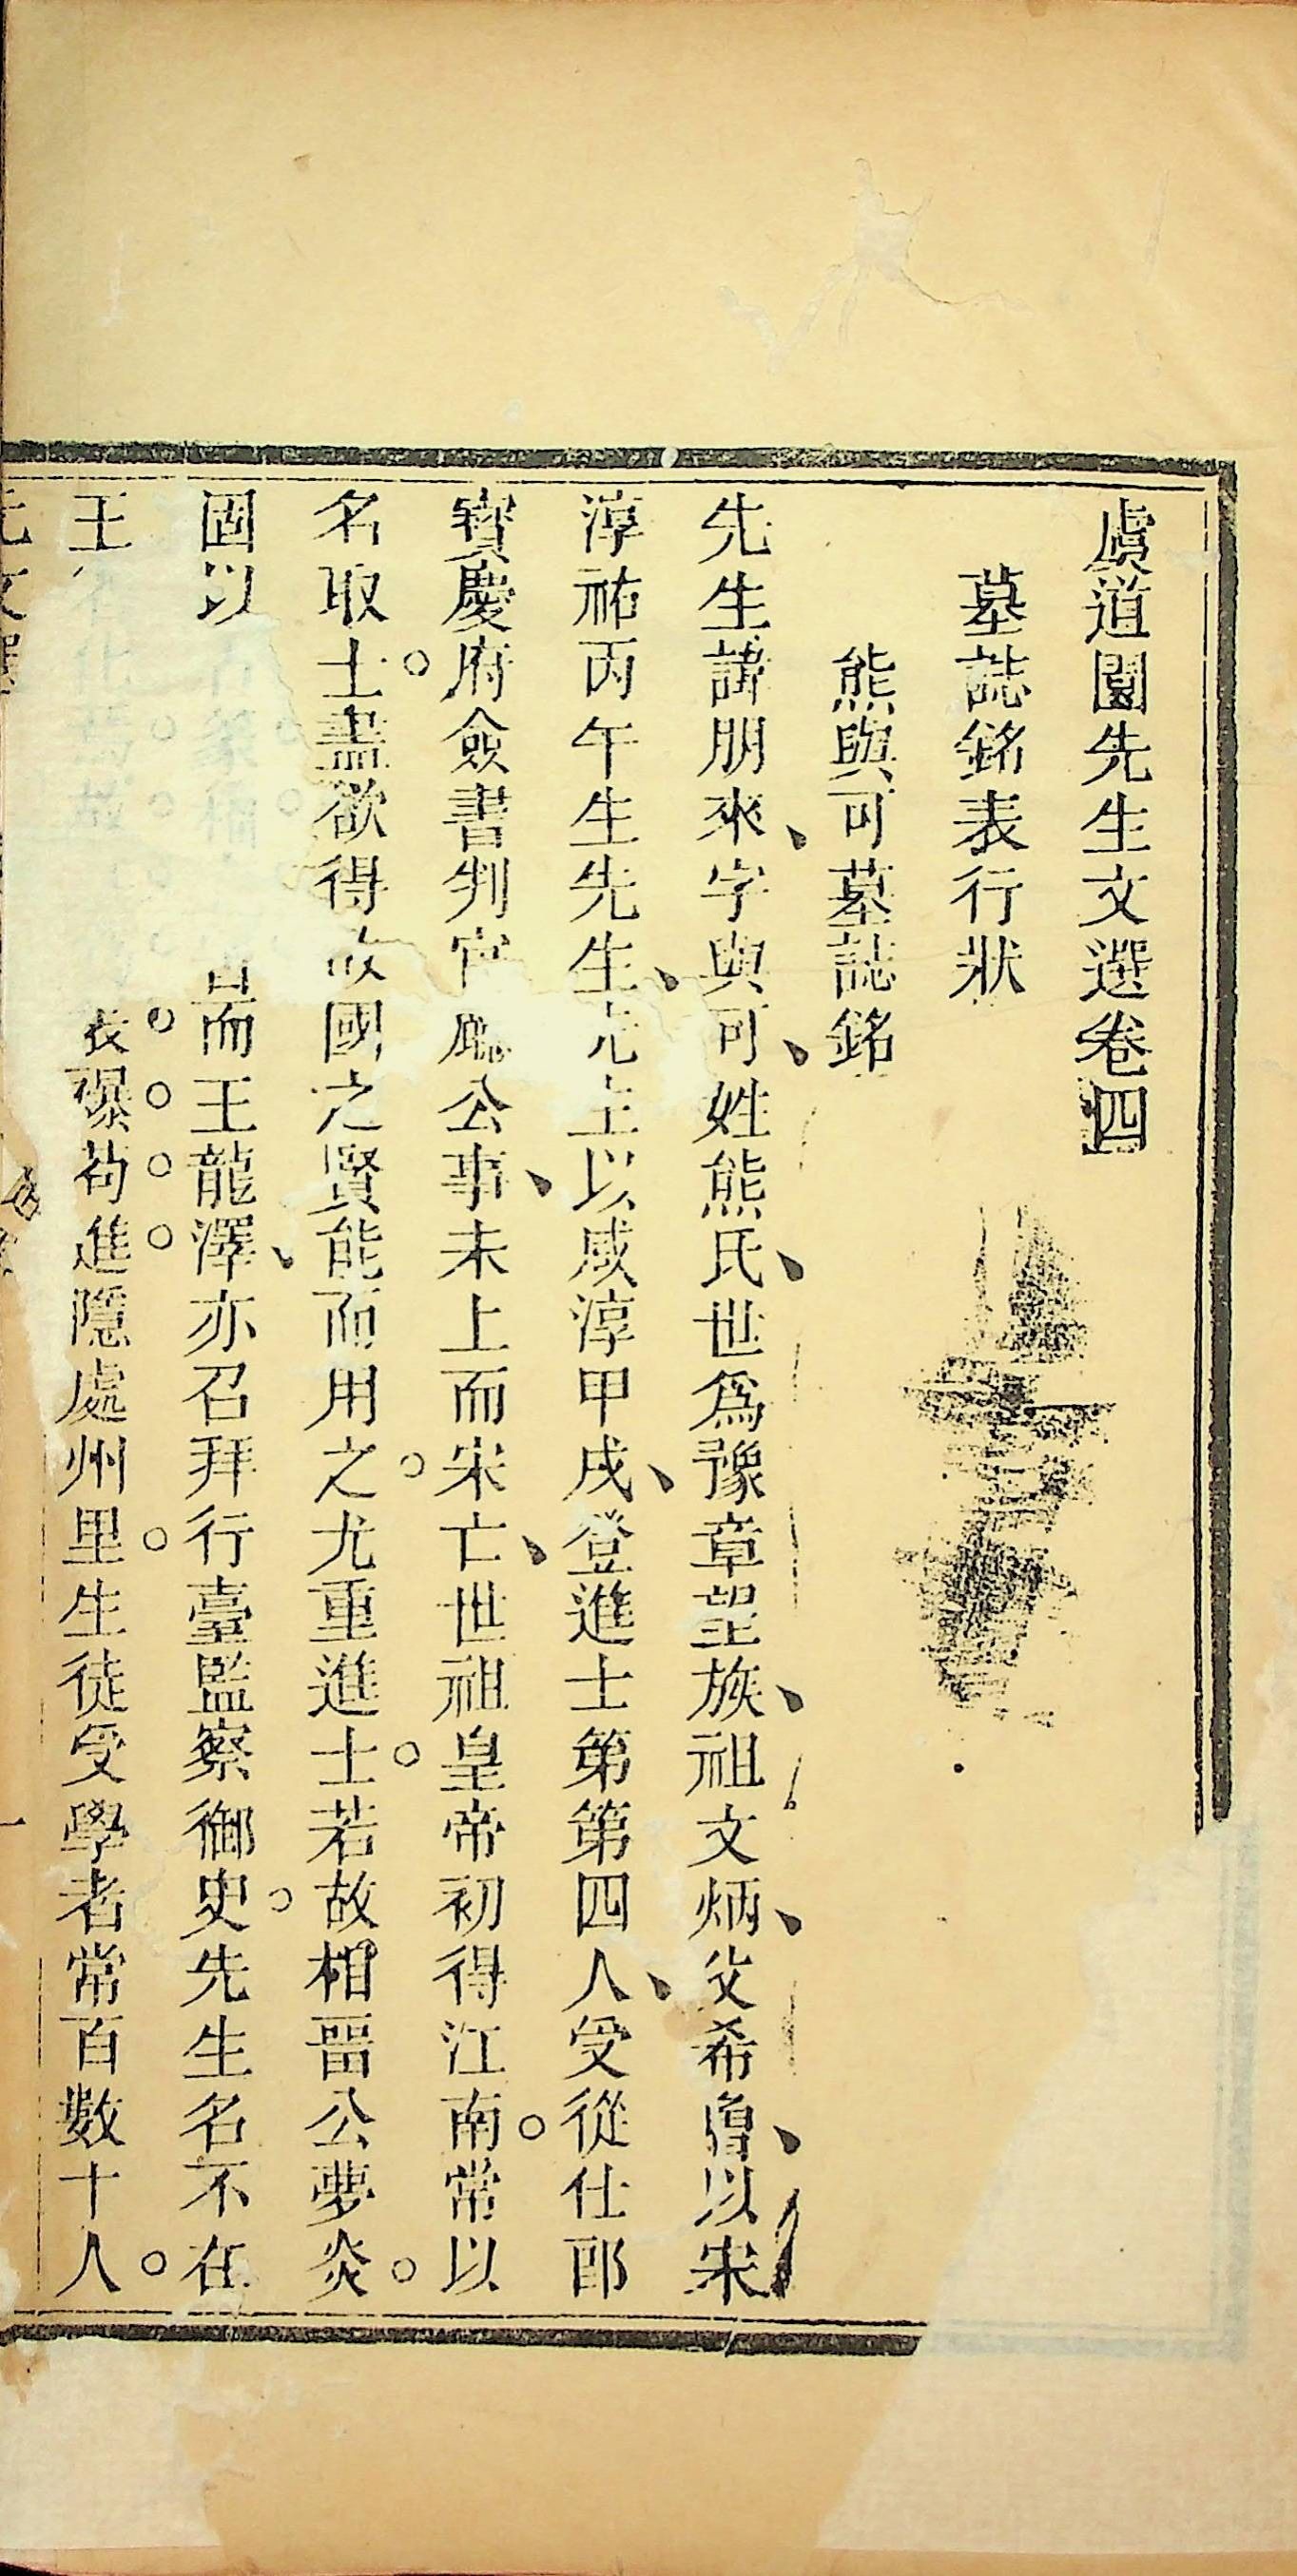 虞道園先生文選卷四
墓誌銘表行狀
熊與可墓誌銘
先生諱朋來、字與可、姓熊氏、世爲豫章望族、祖文炳、父希曾、以宋
淳祐丙午生先生、先生以咸淳甲戌、登進士第第四人、受從仕郎
寶慶府僉書判官廳公事、未上而宋亡、世祖皇帝初得江南。常以
名取士。盡欲得故國之賢能而用之。尤重進士。若故相畱公夢炎。
固以而王龍澤、亦召拜行臺監察御史。先生名不在
王表襮苟進隱處州里。生徒受學者常百數十人。